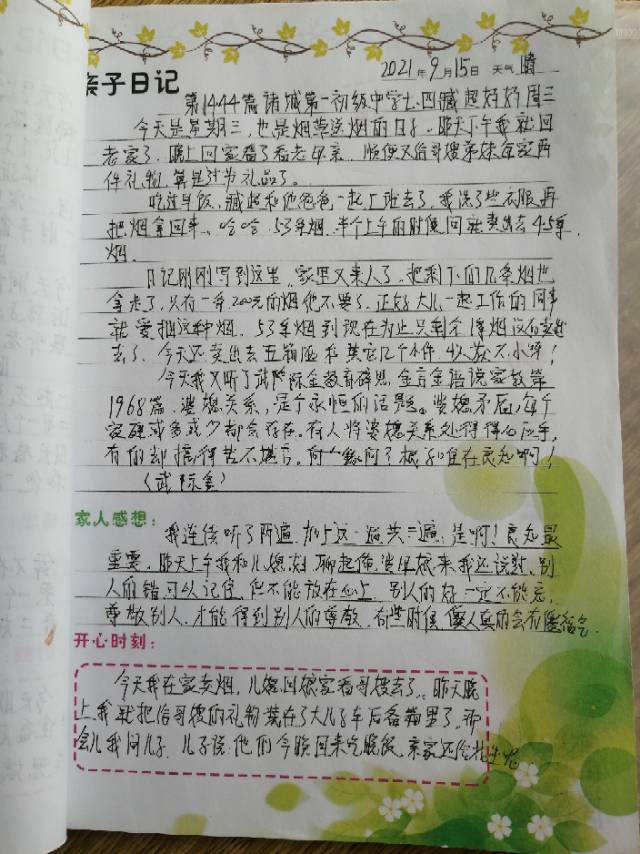 2021年9月15日 天气 晴
亲子日记
第1444篇 诸城第一初级中学七.四臧超好好 周三
今天是星期三,也是烟草送烟的日子。昨天下午我就回
老家了。晚上回家看了看老母亲。顺便又给哥嫂弟妹每家两
件礼物。算是过节礼品了。
吃过早饭,臧超和他爸爸一起上班去了。我洗了些衣服再
把烟拿回来。哈哈.53条烟.半个上午的时候间就卖出去45条
烟.
日记刚刚写到这里.家里又来人了.把剩下的几条烟也
拿走了.只有一条200元的烟他不要了.正好大儿一起工作的同事
就爱抽这种烟.53条烟到现在为止只剩余1条烟没有卖出
去了.今天还卖出去五箱酒和其它几个小件.收获不小呀!
今天我又听了武际金教育碎思.金言金语说家教第
1968篇.婆媳关系,是个永恒的话题。婆媳矛盾,每个
家庭或多或少都会存在。有人将婆媳关系处得得心应手.
有的却搞得苦不堪言。有人会问了根子在良知啊!
(武际金)
家人感想:
我连续听了两遍.加上这一遍共三遍.是啊!良知最
重要.昨天上午我和儿媳刚聊起俺.我还说对.别
人的错可以记住.但不能放在心上.别人的好一定不能忘.
尊敬别人.才能得到别人的尊敬.有些时候.傻人真的会有傻福气.
开心时刻:
今天我在家卖烟.儿媳回娘家看哥嫂去了。昨天晚
上我就把给哥嫂的礼物装在了大儿子车后备箱里了.那
会儿我问儿子.儿子说:他们今晚回来吃晚饭.亲家还给花生呢.